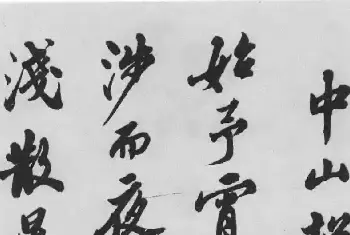 中山
始予宵
涉而夜
淺散